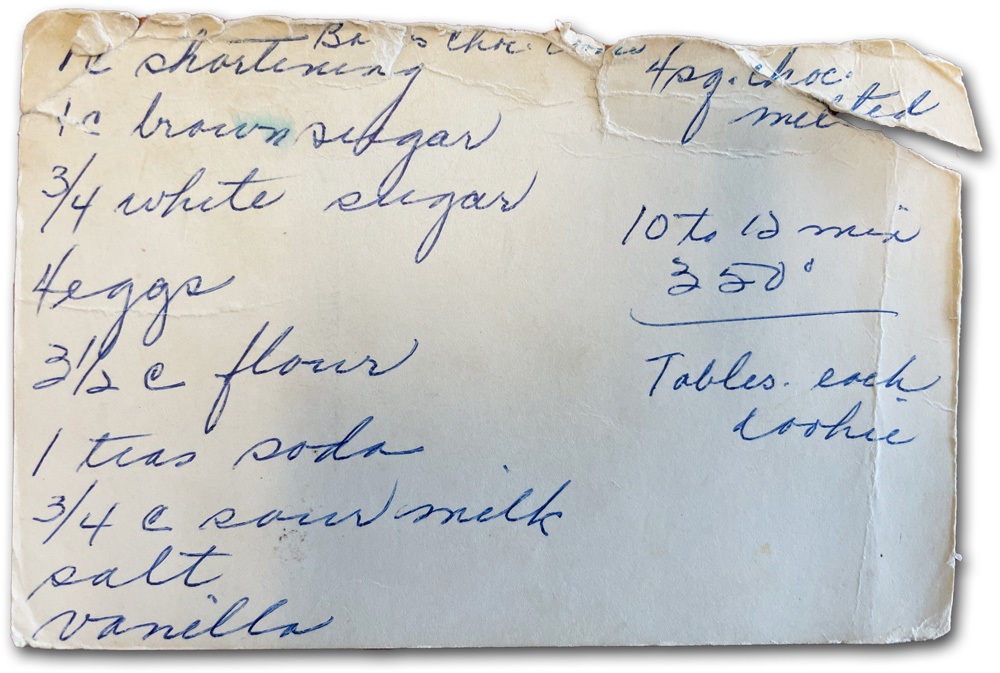 choc.
shortening
1 c brown sugar
3/4 white sugar
4 eggs
3 1/2 c flour
1 teas soda
3/4 c sour milk
salt
vanilla
4 sq. choc.
melted
10 to 12 min
350°
Tables. each
cookie